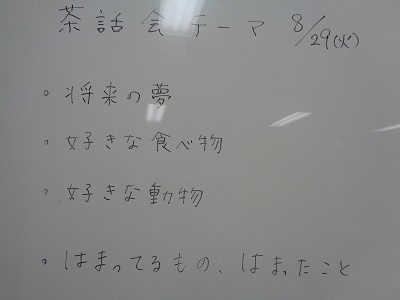 茶話会テーマ 8/29(火)
・将来の夢
・好きな食べ物
・好きな動物
・はまってるもの、はまったこと